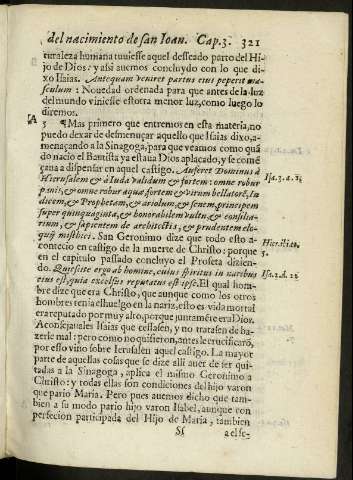 del nacimiento de san Ioan. Cap.3. 321
turaleza humana tuuiesse aquel desseado parto del Hi
jo de Dios: y assi auemos concluydo con lo que di-
xo Isaias. Antequam veniret partus eius peperit ma-
sculum: Nouedad ordenada para que antes de la luz
del mundo viniesse estotra menor luz, como luego lo
diremos.
A 3 ¶ Mas primero que entremos en esta materia, no
puedo dexar de desmenuçar aquello que Isaias dixo, a-
menaçando a la Sinagoga, para que veamos como quã
do nacio el Bautista ya estaua Dios aplacado, y se come
çana a dispensar en aquel castigo. Auferet Dominus à
Hierusalem & à Iuda validum & fortem: omne robur
panis, & omne robur aquæ fortem & virum bellatorē, Iu
dicem, & Prophetam, & ariolum, & senem, principem
super quinquaginta, & honorabilem vultu, & consilia-
rium, & sapientem de architectis, & prudentem elo-
quij mistici. San Geronimo dize que todo esto a-
contecio en castigo de la muerte de Christo: porque
en el capitulo passado concluyo el Profeta dizien-
do. Quiescite ergo ab homine, cuius spiritus in naribus
eius est, quia excelsus reputatus est ipse. El qual hom-
bre dize que era Christo, que aunque como los otros
hombres tenia el huelgo en la nariz, esto es vida mortal
era reputado por muy alto, porque juntamēte era Dios.
Aconsejauales Isaias que cessassen, y no tratasen de ha-
zerle mal: pero como no quisieron, antes le crucificarō,
por esso vino sobre Ierusalen aquel castigo. La mayor
parte de aquellas cosas que se dize alli auer de ser qui-
tadas a la Sinagoga, aplica el mismo Geronimo a
Christo: y todas ellas son condiciones del hijo varon
que pario Maria. Pero pues auemos dicho que tam-
bien a su modo pario hijo varon Isabel, aunque con
perfecion participada del Hijo de Maria, tambien
Sf a else-
Isa. 3. a.
Isa. 2. d. 22